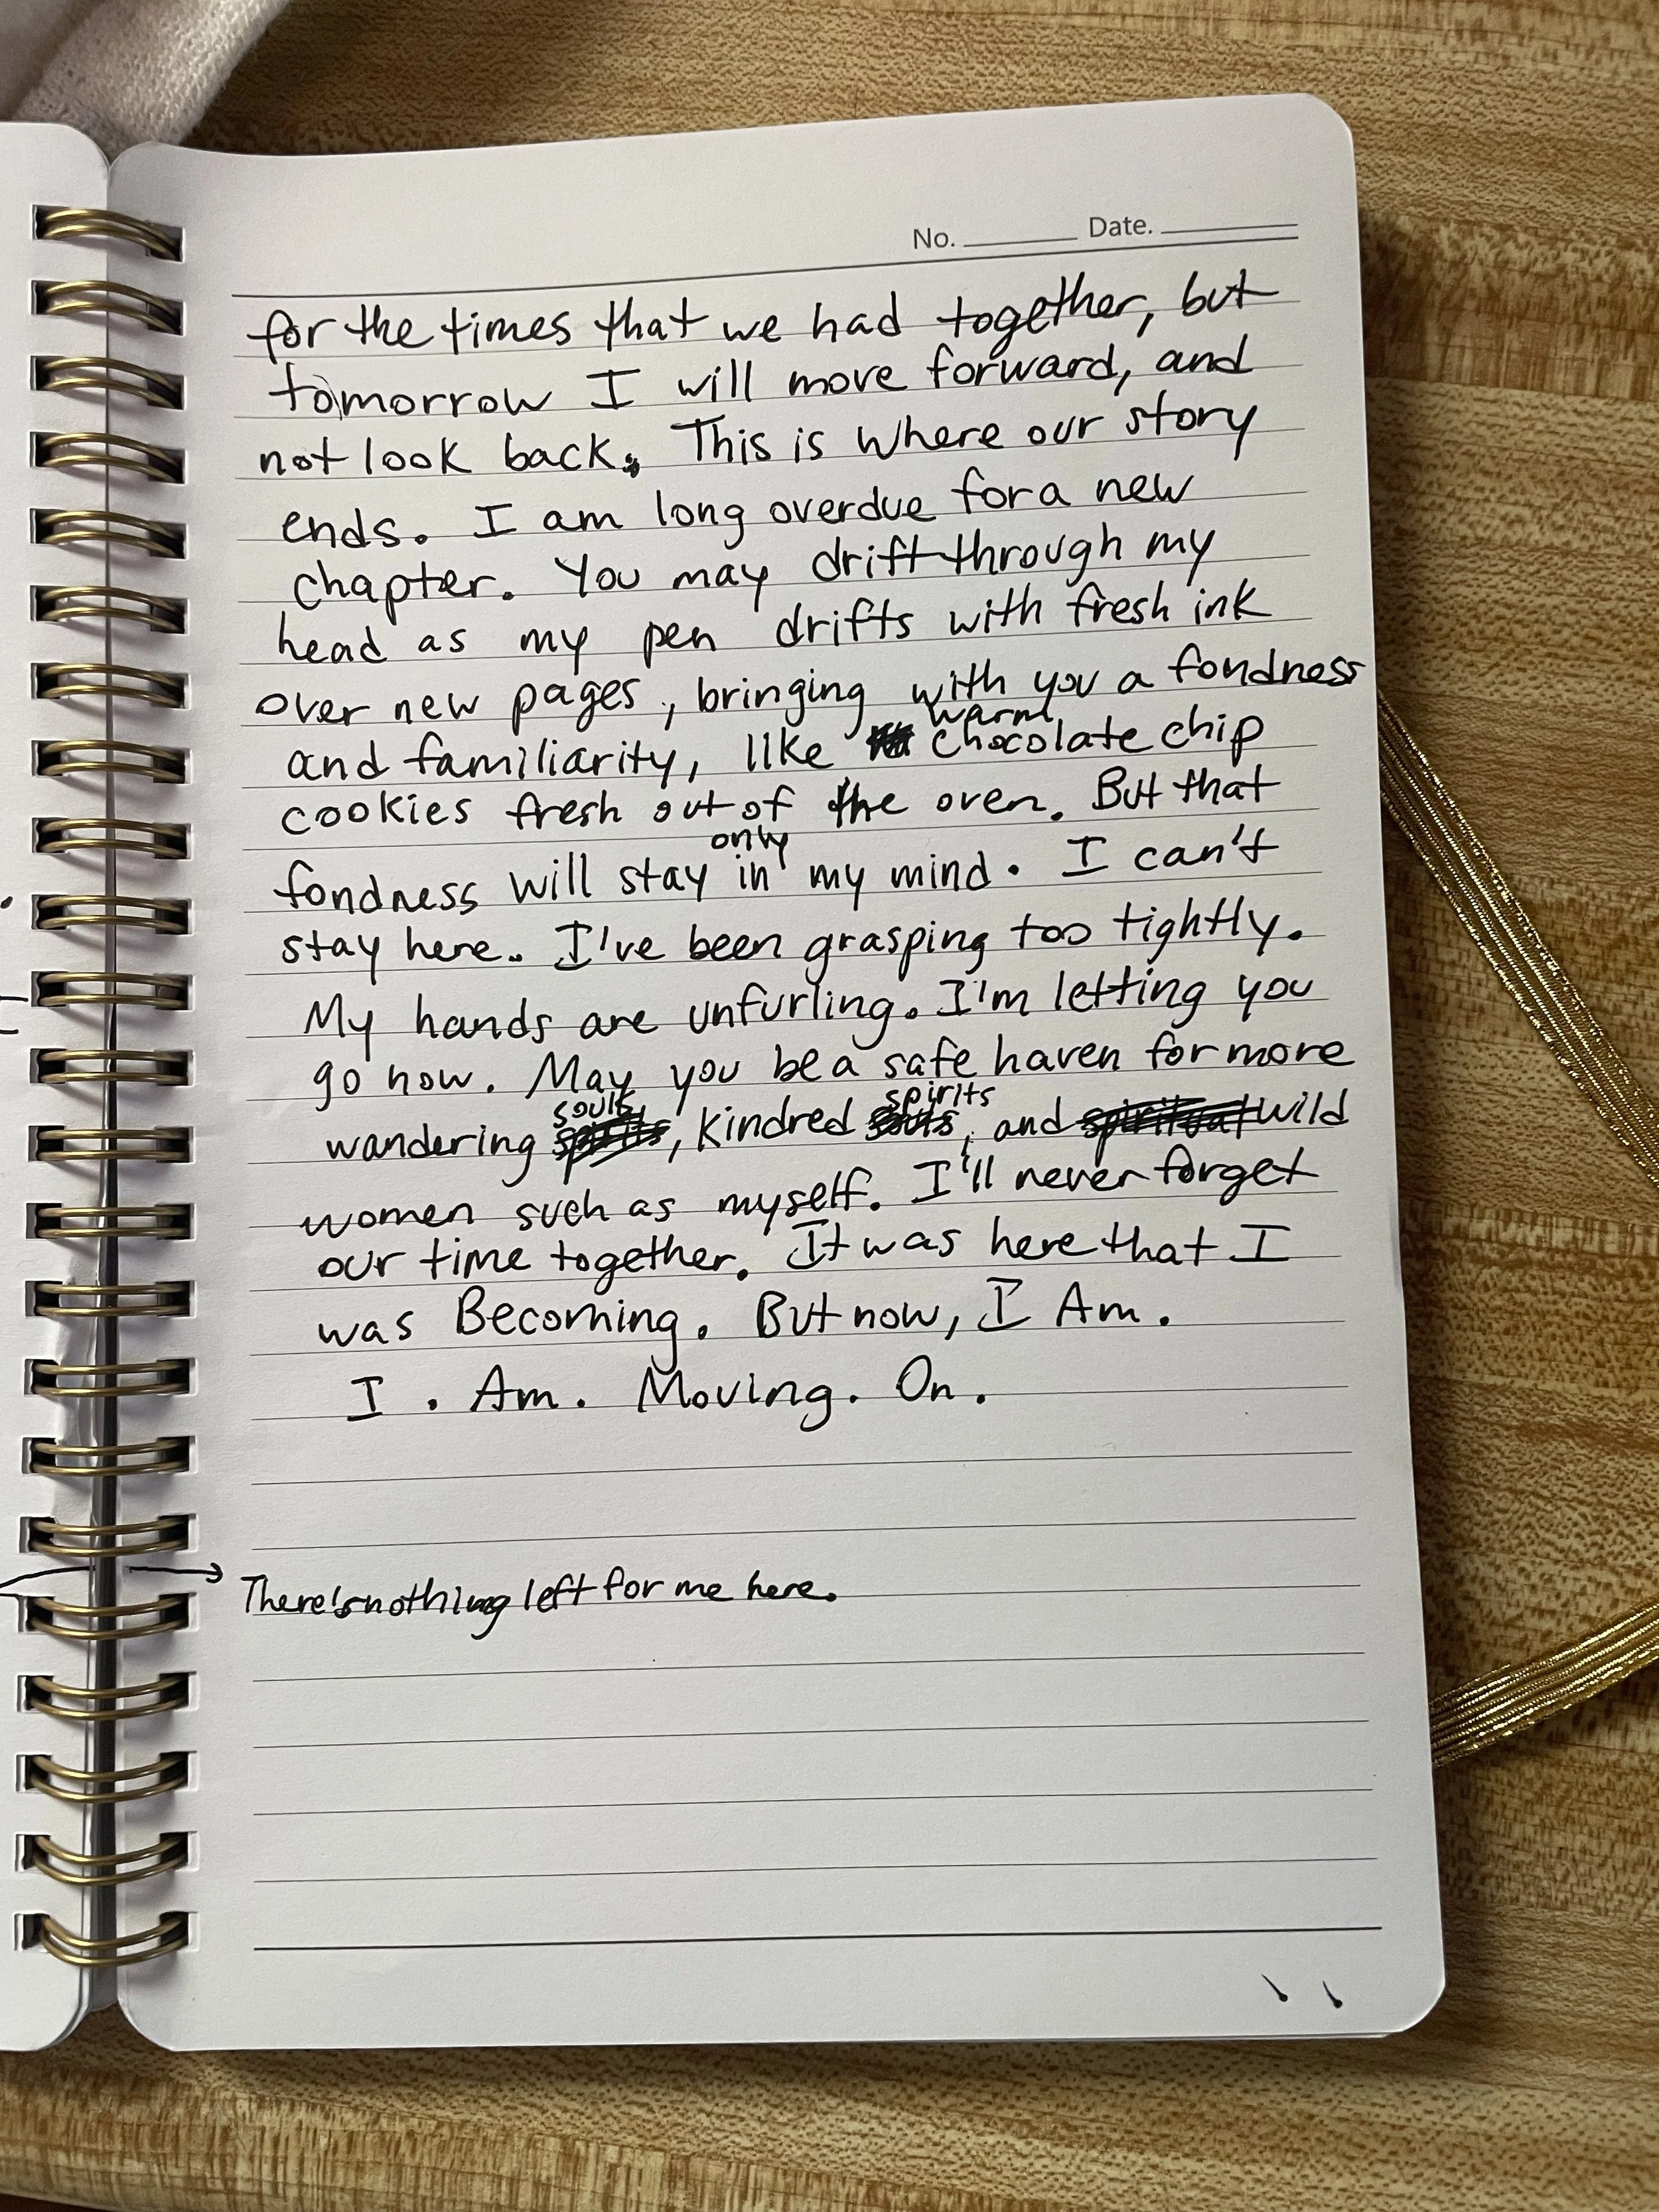 No. Date.
for the times that we had together, but
tomorrow I will move forward, and
not look back. This is where our story
ends. I am long overdue for a new
chapter. You may drift through my
head as my pen drifts with fresh ink
over new pages, bringing with you a fondness
warm
and familiarity, like chocolate chip
cookies fresh out of the oven. But that
only
fondness will stay in my mind. I can't
stay here. I've been grasping too tightly.
My hands are unfurling. I'm letting you
go now. May you be a safe haven for more
souls spirits
wandering spirits, kindred souls, and spiritual wild
women such as myself. I'll never forget
our time together. It was here that I
was Becoming. But now, I Am.
I. Am. Moving. On.
There's nothing left for me here.